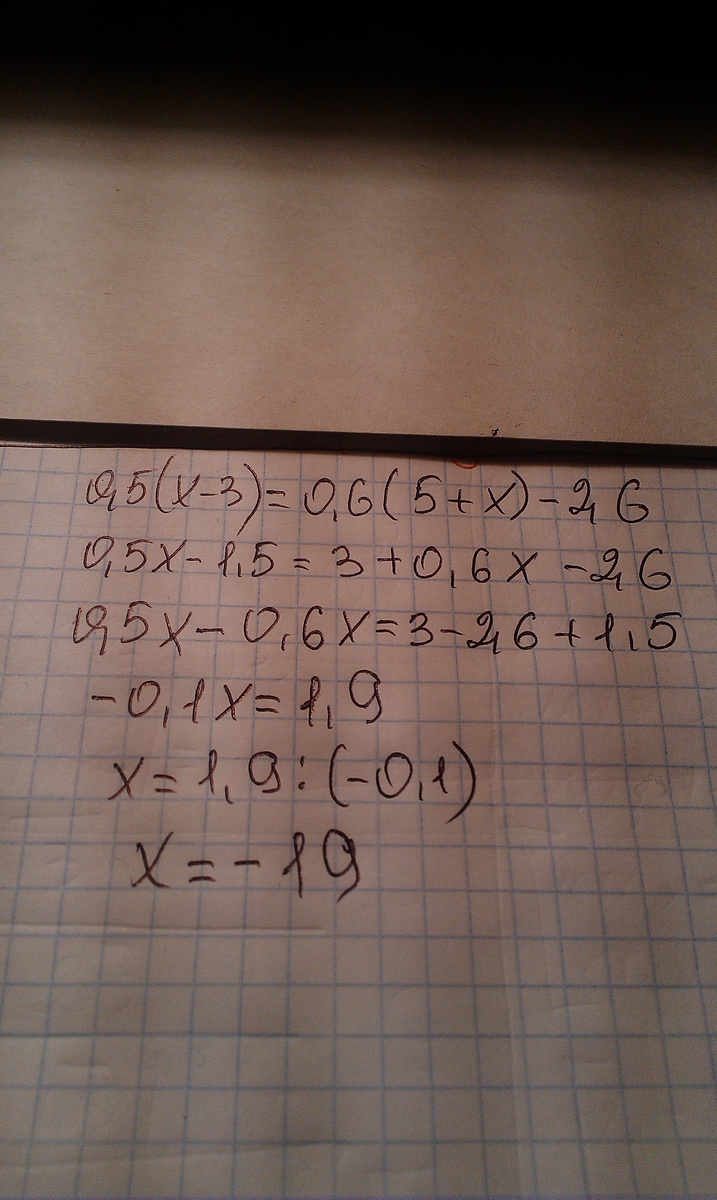 0,5(x-3)=0,6(5+x)-2,6
0,5x-1,5=3+0,6x-2,6
0,5x-0,6x=3-2,6+1,5
-0,1x=1,9
x=1,9:(-0,1)
x=-19